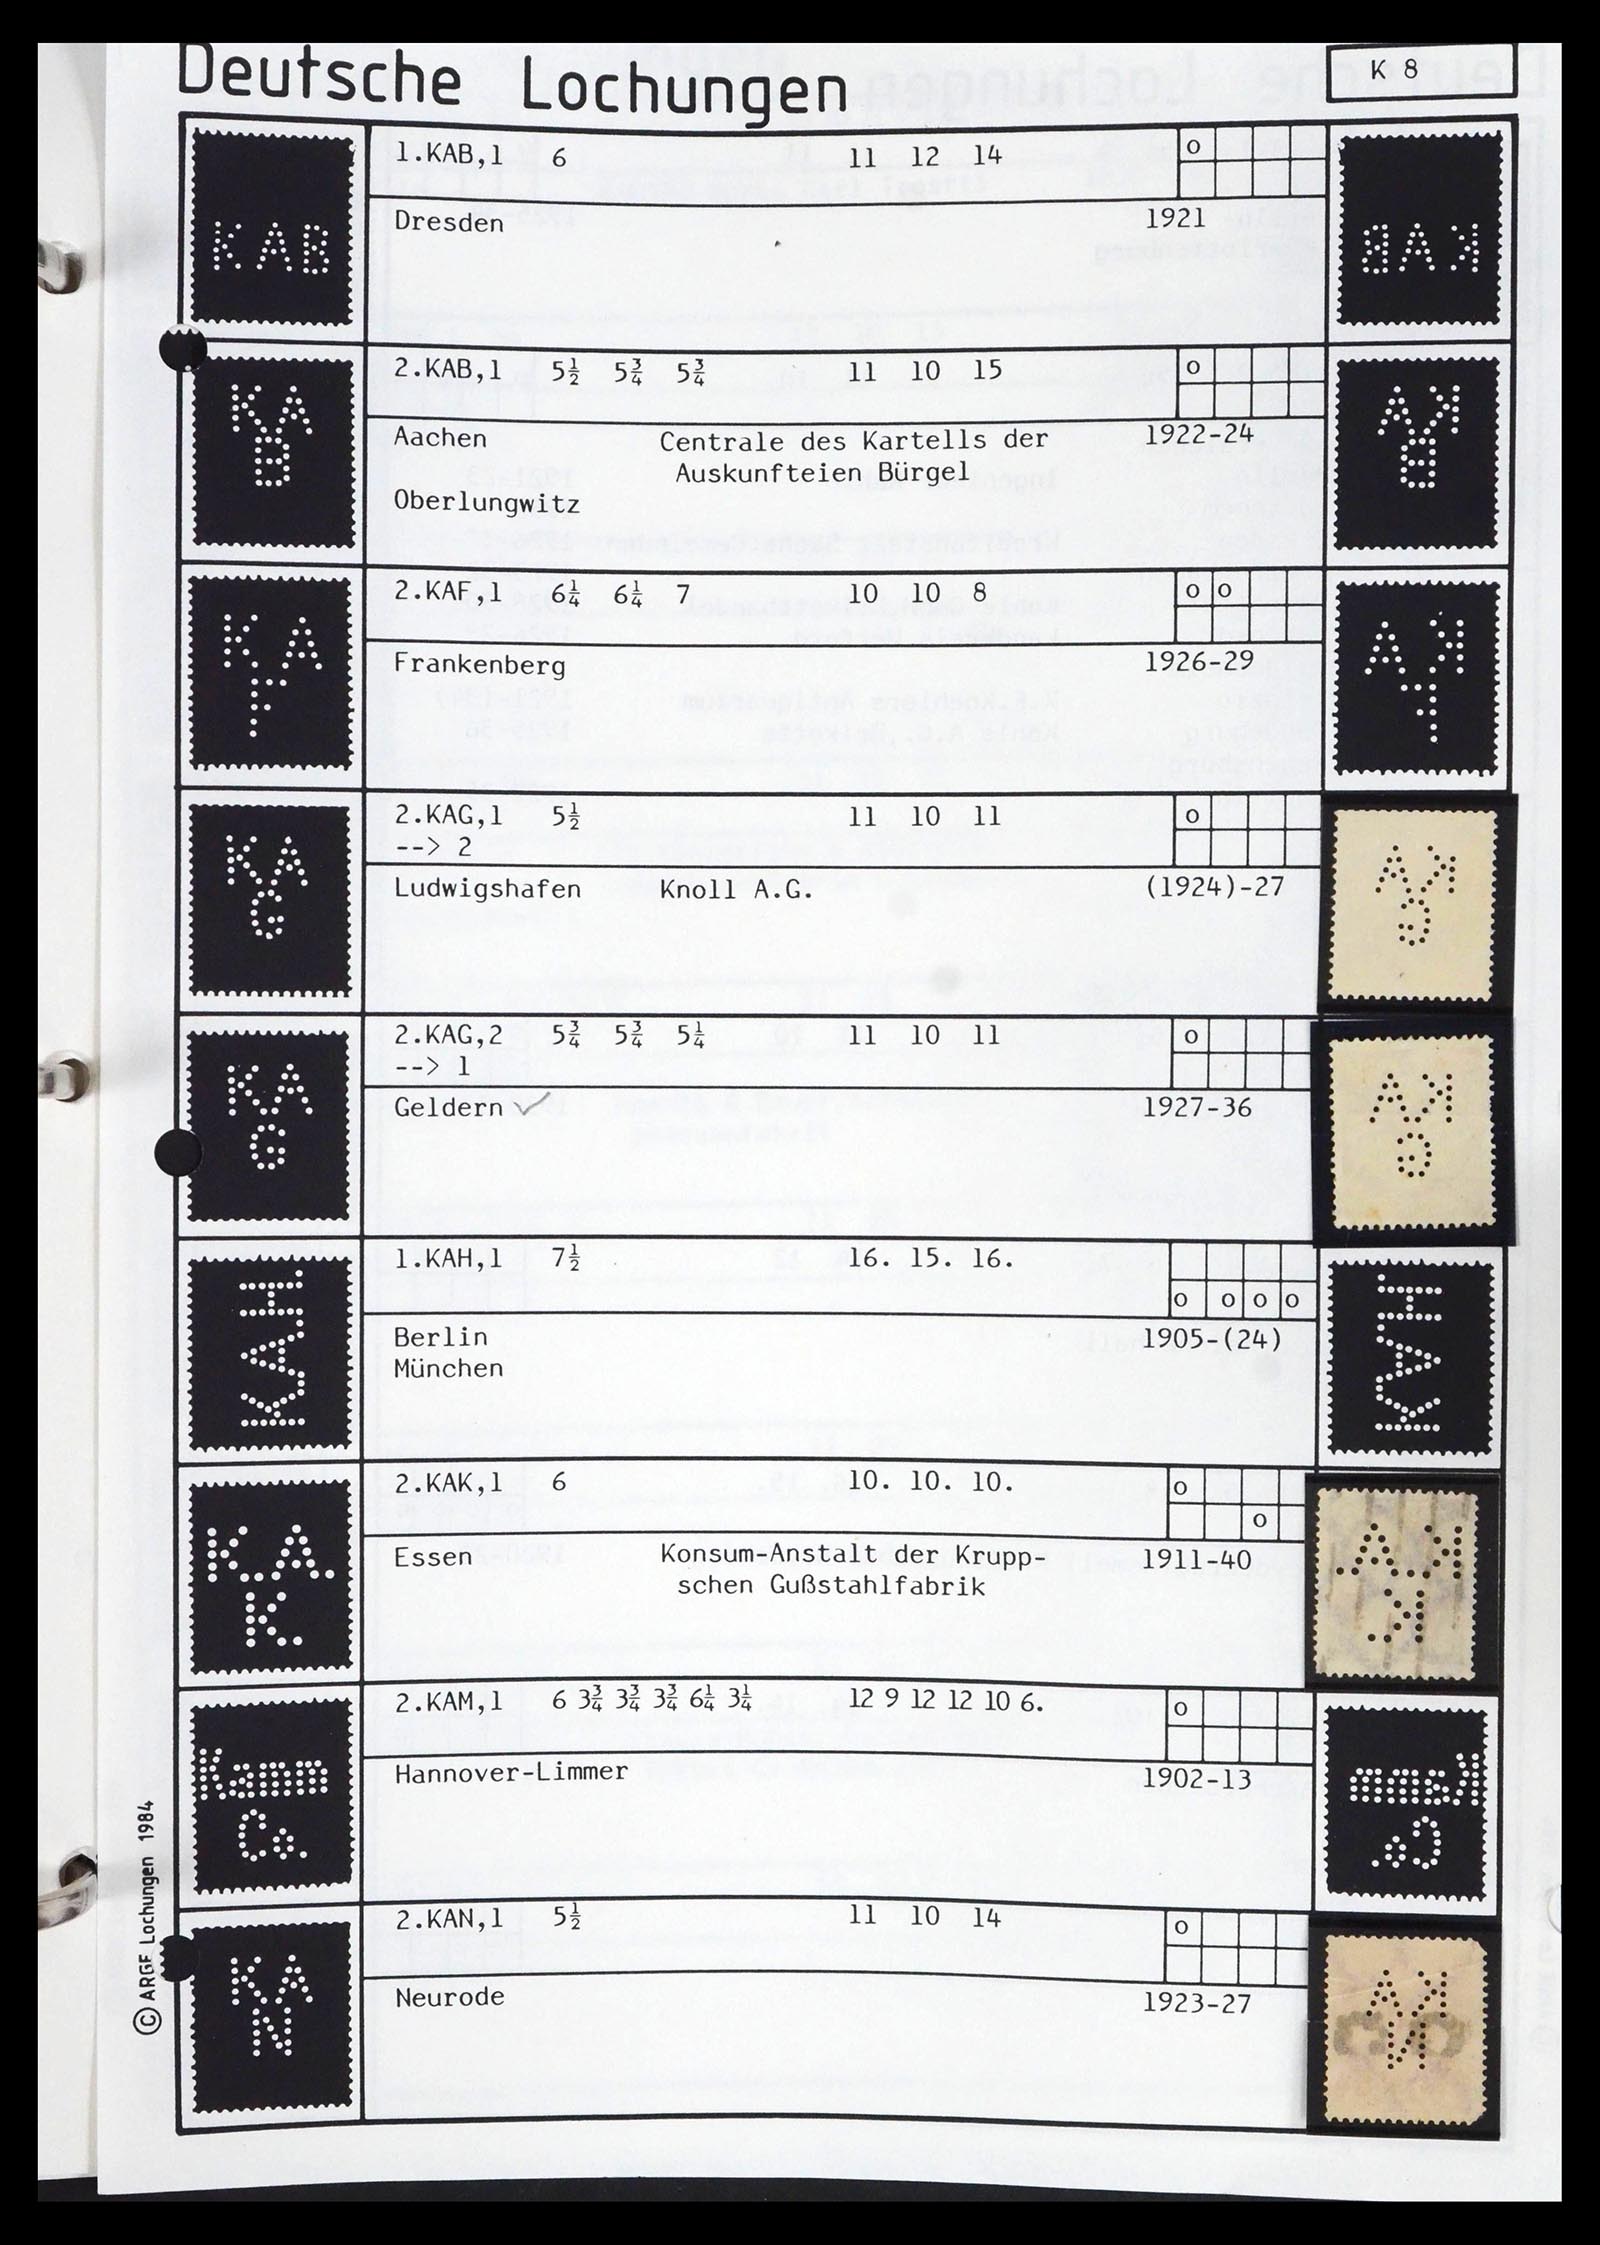 Deutsche Lochungen
K 8
KAB
1.KAB,1 6 11 12 14 o
Dresden 1921
KAB
KA
B
2.KAB,1 5½ 5¾ 5¾ 11 10 15 o
Aachen Centrale des Kartells der 1922-24
Auskunfteien Bürgel
Oberlungwitz
KA
B
KA
F
2.KAF,1 6¼ 6¼ 7 10 10 8 o o
Frankenberg 1926-29
KA
F
KA
G
2.KAG,1 5½ 11 10 11 o
--> 2
Ludwigshafen Knoll A.G. (1924)-27
KA
G
KA
G
2.KAG,2 5¾ 5¾ 5¼ 11 10 11 o
--> 1
Geldern ✓ 1927-36
KA
G
KAH
1.KAH,1 7½ 16. 15. 16.
o o o o
Berlin 1905-(24)
München
KAH
K.A.
K.
2.KAK,1 6 10. 10. 10. o
o
Essen Konsum-Anstalt der Krupp- 1911-40
schen Gußstahlfabrik
K.A.
K.
Kamm
Co.
2.KAM,1 6 3¾ 3¾ 3¾ 6¼ 3¼ 12 9 12 12 10 6. o
Hannover-Limmer 1902-13
Kamm
Co.
KA
N
2.KAN,1 5½ 11 10 14 o
Neurode 1923-27
KA
N
© ARGE Lochungen 1984